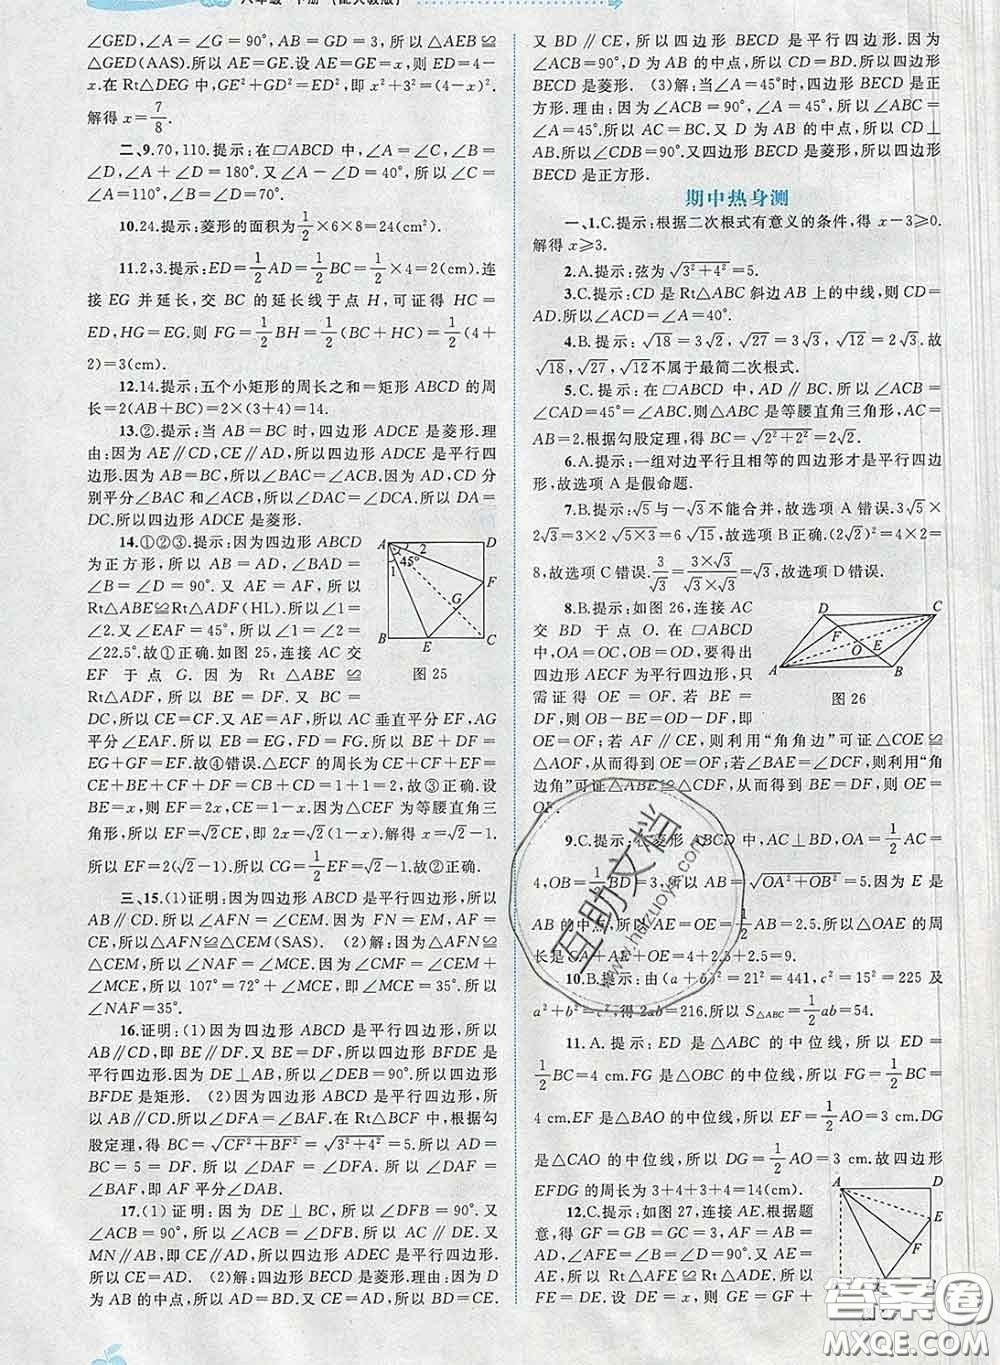 八年级 下册 (配人教版)
∠GED,∠A=∠G=90°,AB=GD=3,所以△AEB≌
△GED(AAS).所以AE=GE.设AE=GE=x,则ED=4-
x.在Rt△DEG中,GE²+GD²=ED²,即x²+3²=(4-x)².
解得x=7/8.
二、9.70,110.提示:在▱ABCD中,∠A=∠C,∠B=
∠D,∠A+∠D=180°.又∠A-∠D=40°,所以∠C=
∠A=110°,∠B=∠D=70°.
10.24.提示:菱形的面积为1/2×6×8=24(cm²).
11.2,3.提示:ED=1/2AD=1/2BC=1/2×4=2(cm).连
接EG并延长,交BC的延长线于点H,可证得HC=
ED,HG=EG.则FG=1/2BH=1/2(BC+HC)=1/2(4+
2)=3(cm).
12.14.提示:五个小矩形的周长之和=矩形ABCD的周
长=2(AB+BC)=2×(3+4)=14.
13.②.提示:当AB=BC时,四边形ADCE是菱形.理
由:因为AE∥CD,CE∥AD,所以四边形ADCE是平行四
边形.因为AB=BC,所以∠BAC=∠ACB.因为AD,CD分
别平分∠BAC和∠ACB,所以∠DAC=∠DCA.所以DA=
DC.所以四边形ADCE是菱形.
14.①②③.提示:因为四边形ABCD
为正方形,所以AB=AD,∠BAD=
∠B=∠D=90°.又AE=AF,所以
Rt△ABE≌Rt△ADF(HL).所以∠1=
∠2.又∠EAF=45°,所以∠1=∠2
=22.5°.故①正确.如图25,连接AC交
EF于点G.因为Rt△ABE≌
Rt△ADF,所以BE=DF.又BC=
DC,所以CE=CF.又AE=AF,所以AC垂直平分EF,AG
平分∠EAF.所以EB=EG,FG=FD.所以BE+DF=
EG+GF=EF.故④错误.△ECF的周长为CE+CF+EF=
CE+BE+CF+DF=CB+CD=1+1=2,故③正确.设
BE=x,则EF=2x,CE=1-x.因为△CEF为等腰直角三
角形,所以EF=√2CE,即2x=√2(1-x).解得x=√2-1.
所以EF=2(√2-1),所以CG=1/2EF=√2-1.故②正确.
A D F G C E B 1 2 45°
图25
三、15.(1)证明:因为四边形ABCD是平行四边形,所以
AB∥CD.所以∠AFN=∠CEM.因为FN=EM,AF=CE,
所以△AFN≌△CEM(SAS). (2)解:因为△AFN≌
△CEM,所以∠NAF=∠MCE.因为∠CMF=∠CEM+
∠MCE,所以107°=72°+∠MCE.所以∠MCE=35°.所以
∠NAF=35°.
16.证明:(1)因为四边形ABCD是平行四边形,所以
AB∥CD.所以BE∥DF.又BE=DF,所以四边形BFDE是
平行四边形.因为DE⊥AB,所以∠DEB=90°.所以四边形
BFDE是矩形. (2)因为四边形ABCD是平行四边形,所
以AB∥CD.所以∠DFA=∠FAB.在Rt△BCF中,根据勾
股定理,得BC=√CF²+BF²=√3²+4²=5.所以AD=
BC=DF=5.所以∠DAF=∠DFA.所以∠DAF=∠FAB,
即AF平分∠DAB.
17.(1)证明:因为DE⊥BC,所以∠DFB=90°.又
∠ACB=90°,所以∠ACB=∠DFB.所以AC∥DE.又
MN∥AB,即CE∥AD,所以四边形ADEC是平行四边形.
所以CE=AD. (2)解:四边形BECD是菱形.理由:因为D
为AB的中点,所以AD=BD.又CE=AD,所以BD=CE.
又BD∥CE,所以四边形BECD是平行四边形.因为
∠ACB=90°,D为AB的中点,所以CD=BD.所以四边形
BECD是菱形. (3)解:当∠A=45°时,四边形BECD是正
方形.理由:因为∠ACB=90°,∠A=45°,所以∠ABC=
∠A=45°.所以AC=BC.又D为AB的中点,所以CD⊥
AB.所以∠CDB=90°.又四边形BECD是菱形,所以四边形
BECD是正方形.
期中热身测
一、1.C.提示:根据二次根式有意义的条件,得x-3≥0.
解得x≥3.
2.A.提示:弦为√3²+4²=5.
3.C.提示:CD是Rt△ABC斜边AB上的中线,所以CD=
AD.所以∠ACD=∠A=40°.
4.B.提示:√18=3√2,√27=3√3,√12=2√3.故
√18,√27,√12不属于最简二次根式.
5.C.提示:在▱ABCD中,AD∥BC.所以∠ACB=
∠CAD=45°=∠ABC.则△ABC是等腰直角三角形,AC=
AB=2.根据勾股定理,得BC=√2²+2²=2√2.
6.A.提示:一组对边平行且相等的四边形才是平行四边
形,故选项A是假命题.
7.B.提示:√5与-√3不能合并,故选项A错误.3√5×
2√3=3×2×√5×√3=6√15,故选项B正确.(2√2)²=4×2=
8,故选项C错误.3/√3=3×√3/√3×√3=√3,故选项D错误.
8.B.提示:如图26,连接AC
交BD于点O.在▱ABCD
中,OA=OC,OB=OD,要得出
四边形AECF为平行四边形,只
需证得OE=OF.若BE=
DF,则OB-BE=OD-DF,即
OE=OF;若AF∥CE,则利用“角角边”可证△COE≌
△AOF,从而得到OE=OF;若∠BAE=∠DCF,则利用“角
边角”可证△ABE≌△CDF,从而得到BE=DF,所以OE=
OF.
D C F O E A B
图26
9.C.提示:在菱形ABCD中,AC⊥BD,OA=1/2AC=
4,OB=1/2BD=3,所以AB=√OA²+OB²=5.因为E是
AB的中点,所以AE=OE=1/2AB=2.5.所以△OAE的周
长是OA+AE+OE=4+2.5+2.5=9.
10.B.提示:由(a+b)²=21²=441,c²=15²=225及
a²+b²=c²,得2ab=216.所以S△ABC=1/2ab=54.
11.A.提示:ED是△ABC的中位线,所以ED=
1/2BC=4 cm.FG是△OBC的中位线,所以FG=1/2BC=
4 cm.EF是△BAO的中位线,所以EF=1/2AO=3 cm.DG
是△CAO的中位线,所以DG=1/2AO=3 cm.故四边形
EFDG的周长为3+4+3+4=14(cm).
12.C.提示:如图27,连接AE.根据题
意,得GF=GB=GC=3,AF=AB=
AD,∠AFE=∠B=∠D=90°.又AE=
AE,所以Rt△AFE≌Rt△ADE,所以
FE=DE.设DE=x,则EG=GF+
A D E F
互助文档
www.huzuoye.com
答案圈
MXQE.COM